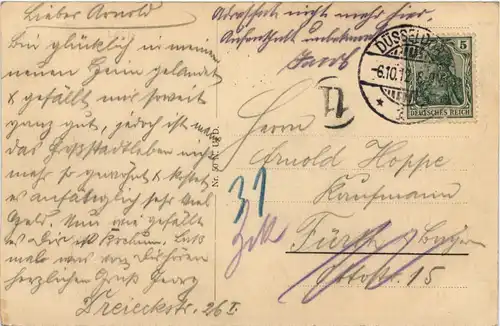 Lieber Arnold
bin glücklich in meinem
neuen Heim gelandet
& gefällt mir soweit
ganz gut, jedoch ist man
das Großstadtleben nicht
mehr so gewöhnt & kostet
es anfänglich sehr viel
Geld. Nun wie gefällt
es Dir in Laß
mal was von Dir hören
herzlichen Gruß Georg
Dreieckstr. 26 I.
Nr. 50
Adressat nicht mehr hier,
Aufenthalt unbekannt
DÜSSELDORF
6.10.12
5
DEUTSCHES REICH
11
Herrn
Arnold Hoppe
Kaufmann
Fürth Bayern
Ottostr. 15
31